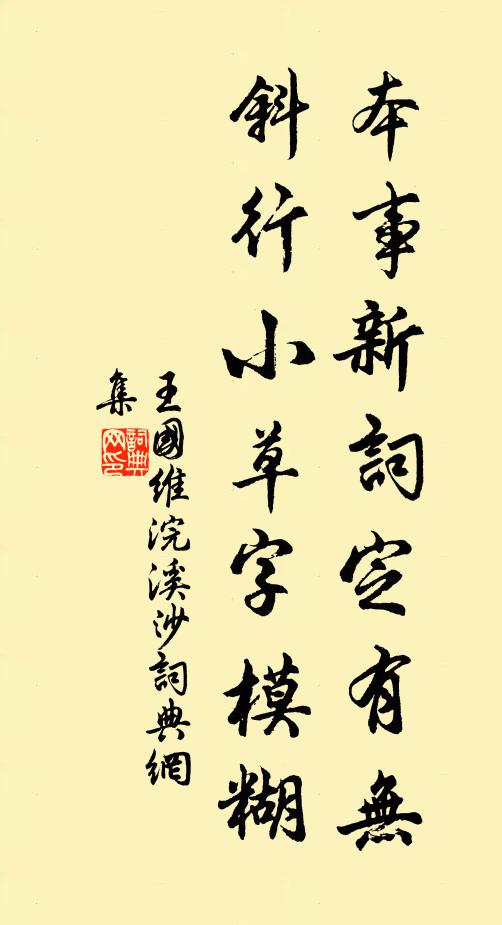 本事新詞定有無
斜行小草字模糊
王國維浣溪沙詞典網
集
詞典
网印